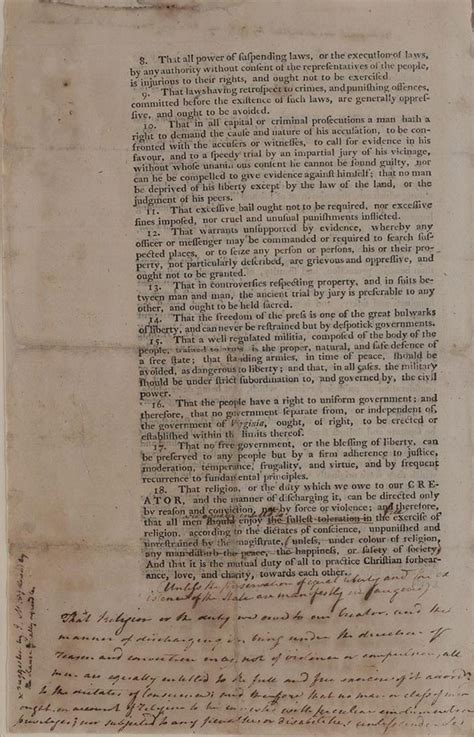 8. That all power of suspending laws, or the execution of laws,
by any authority without consent of the representatives of the people,
is injurious to their rights, and ought not to be exercised.
9. That laws having retrospect to crimes, and punishing offences,
committed before the existence of such laws, are generally oppres-
sive, and ought to be avoided.
10. That in all capital or criminal prosecutions a man hath a
right to demand the cause and nature of his accusation, to be con-
fronted with the accusers or witnesses, to call for evidence in his
favour, and to a speedy trial by an impartial jury of his vicinage,
without whose unanimous consent he cannot be found guilty, nor
can he be compelled to give evidence against himself; that no man
be deprived of his liberty except by the law of the land, or the
judgment of his peers.
11. That excessive bail ought not to be required, nor excessive
fines imposed, nor cruel and unusual punishments inflicted.
12. That warrants unsupported by evidence, whereby any
officer or messenger may be commanded or required to search sus-
pected places, or to seize any person or persons, his or their pro-
perty, not particularly described, are grievous and oppressive, and
ought not to be granted.
13. That in controversies respecting property, and in suits be-
tween man and man, the ancient trial by jury is preferable to any
other, and ought to be held sacred.
14. That the freedom of the press is one of the great bulwarks
of liberty, and can never be restrained but by despotick governments.
15. That a well regulated militia, composed of the body of the
people, trained to arms is the proper, natural, and safe defence of
a free state; that standing armies, in time of peace, should be
avoided, as dangerous to liberty; and that, in all cases, the military
should be under strict subordination to, and governed by, the civil
power.
16. That the people have a right to uniform government; and
therefore, that no government separate from, or independent of,
the government of Virginia, ought, of right, to be erected or
established within the limits thereof.
17. That no free government, or the blessing of liberty, can
be preserved to any people but by a firm adherence to justice,
moderation, temperance, frugality, and virtue, and by frequent
recurrence to fundamental principles.
18. That religion, or the duty which we owe to our CRE-
ATOR, and the manner of discharging it, can be directed only
by reason and conviction, not by force or violence; and therefore,
that all men should enjoy the fullest toleration in the exercise of
religion, according to the dictates of conscience, unpunished and
unrestrained by the magistrate, (unless, under colour of religion,
any man disturb the peace, the happiness, or safety of society)
And that it is the mutual duty of all to practice Christian forbear-
ance, love, and charity, towards each other.
Unless the preservation of equal liberty and the ex
istence of the State are manifestly endangered
That Religion or the duty we owe to our Creator, and the
manner of discharging it, being under the direction of
reason and conviction only, not of violence or compulsion, all
men are equally entitled to the full and free exercise of it accord.g
to the dictates of Conscience; and therefore that no man or class of men
ought, on account of religion to be invested with peculiar emoluments or
privileges; nor subjected to any penalties or disabilities unless under